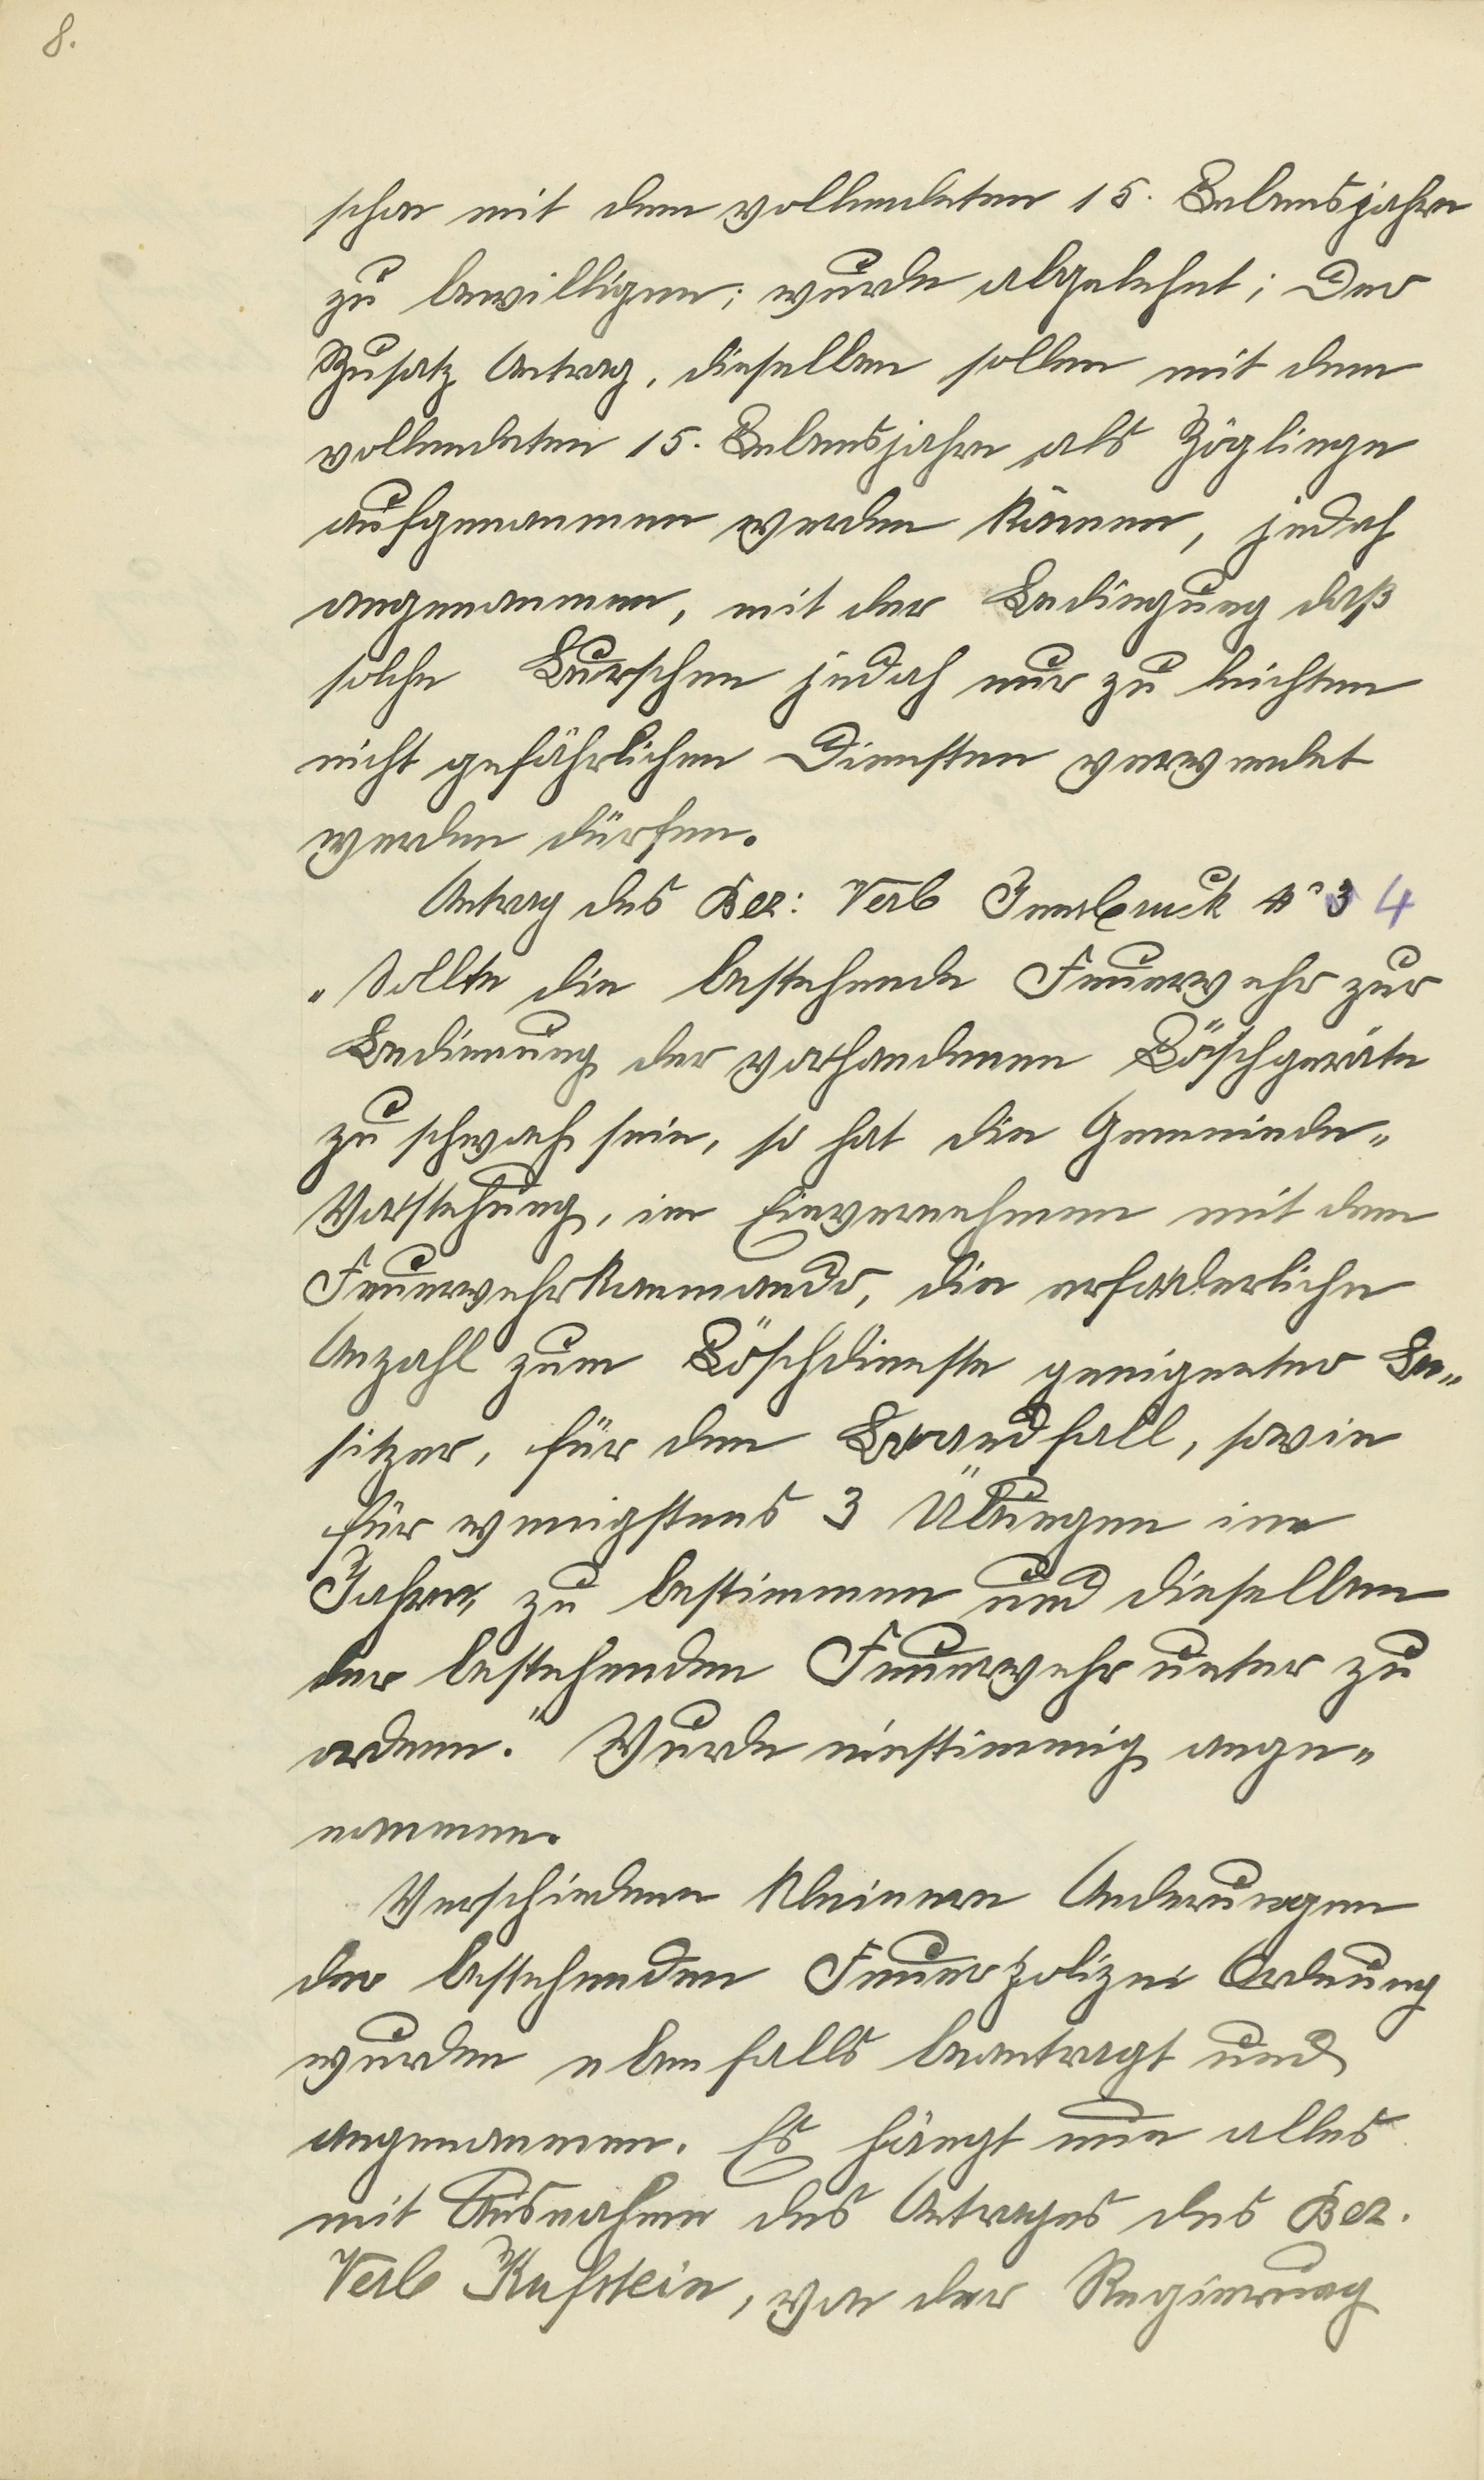 8.
schon mit dem vollendeten 15. Lebensjahre
zu bewilligen; wurde abgelehnt; Der
Zusatz Antrag, dieselben sollen mit dem
vollendeten 15. Lebensjahre als Zöglinge
aufgenommen werden können, jedoch
angenommen, mit der Bedingung daß
solche Burschen jedoch nur zu leichten
nicht gefährlichen Diensten verwendet
werden dürfen.
Antrag des Bez: Verb Innsbruck No 3 4
„Sollte die bestehende Feuerwehr zur
Bedienung der vorhandenen Löschgeräte
zu schwach sein, so hat die Gemeinde-
Vorstehung, im Einvernehmen mit dem
Feuerwehrkommando, die erforderliche
Anzahl zum Löschdienste geeigneter Be-
sitzer, für den Brandfall, sowie
für wenigstens 3 Übungen im
Jahre, zu bestimmen und dieselben
der bestehenden Feuerwehr unter zu
ordnen." Wurde einstimmig ange-
nommen.
Verschiedene kleinere Anderungen
der bestehenden Feuerpolizei Ordnung
wurden ebenfalls beantragt und
angenommen. Es hängt nun alles
mit Ausnahme des Antrages des Bez.
Verb Kufstein, von der Regierung